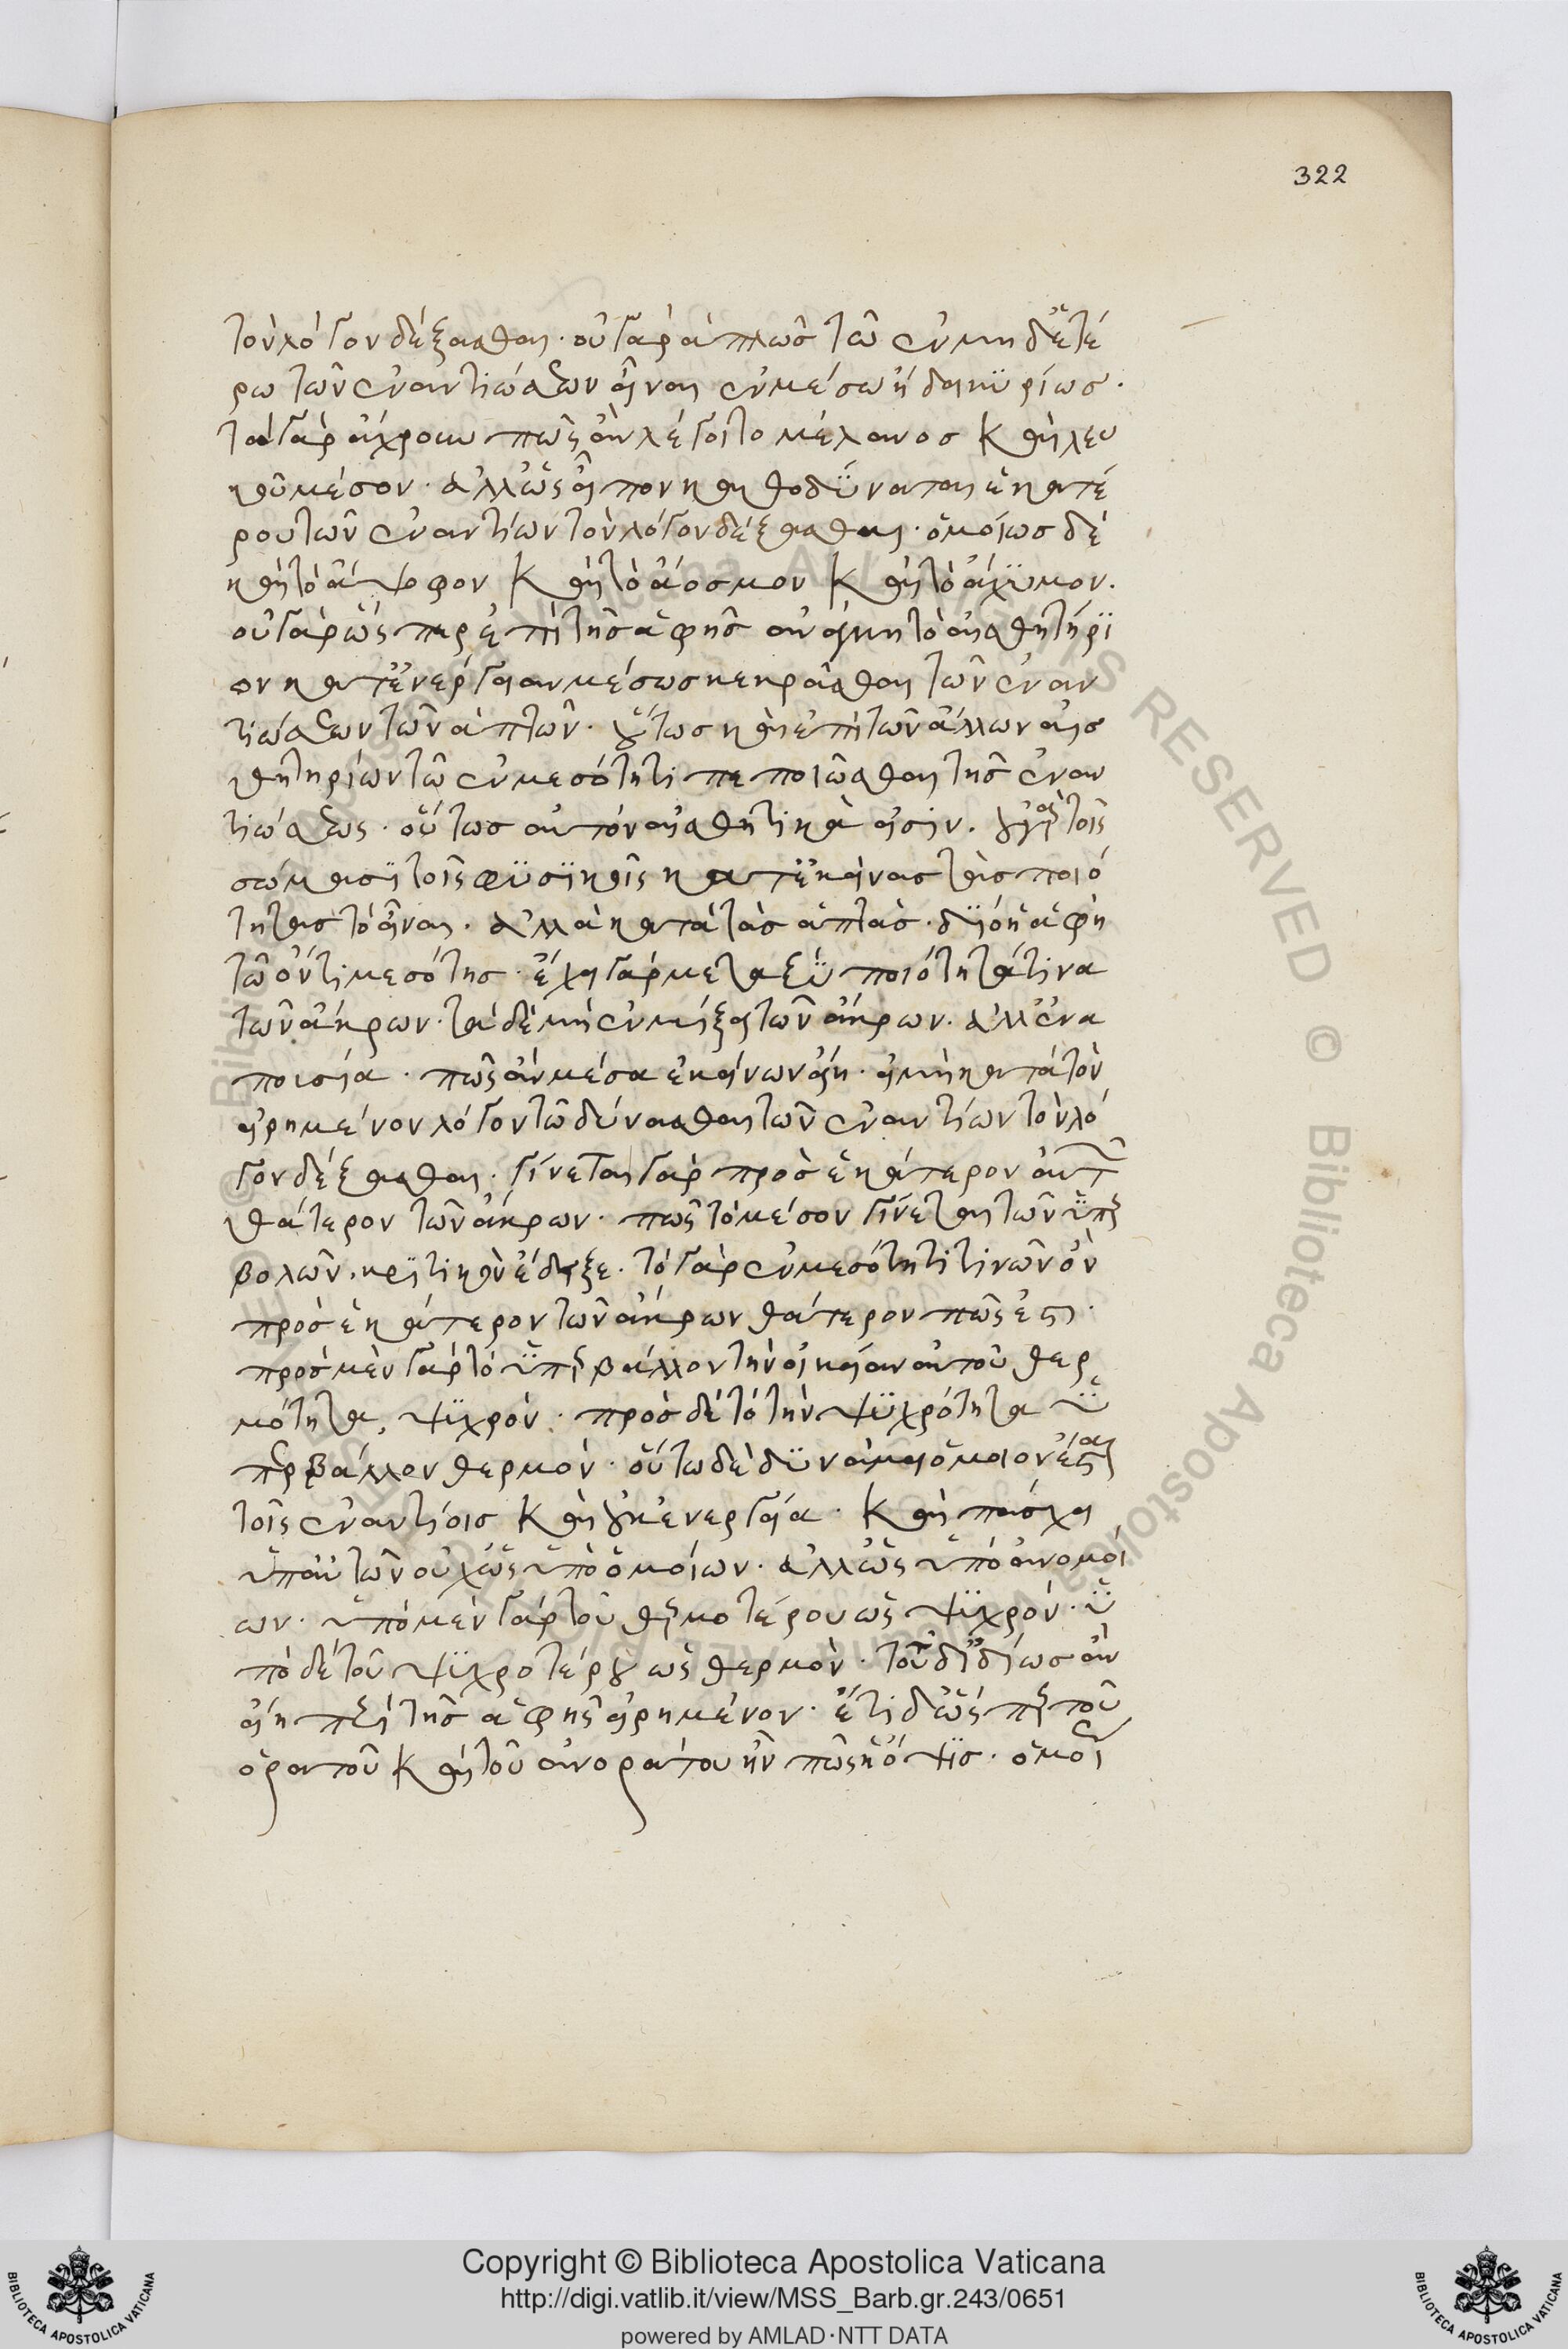 322
τὸν λόγον δέξασθαι· οὐ γὰρ ἁπλῶς τῶ ἐν μηδετέ
ρω τῶν ἐναντιώσεων εἶναι ἐν μέσω ἤδη κυρίως·
τὸ γὰρ ἄχρουν πῶς ἂν λέγοιτο μέλανος καὶ λευ
κοῦ μέσον· ἀλλ' ὡς εἶπον καθὸ δύναται ἑκατέ
ρου τῶν ἐναντίων τὸν λόγον δέξασθαι· ὁμοίως δὲ
καὶ τὸ ἄψοφον καὶ τὸ ἄοσμον καὶ τὸ ἄχυμον.
οὐ γὰρ ὥσπερ ἐπὶ τῆς ἁφῆς ἀνάγκη τὸ αἰσθητήρι
ον κατ' ἐνέργειαν μέσως κεκρᾶσθαι τῶν ἐναν
τιώσεων τῶν ἁπτῶν· οὕτως καὶ ἐπὶ τῶν ἄλλων αἰσ
θητηρίων τῶ ἐν μεσότητι πεποιῶσθαι τῆς ἐναν
τιώσεως· οὕτως αὐτῶν αἰσθητικά εἰσιν. οὐ γὰρ τοῖς
σώμασι τοῖς φυσικοῖς κατ' ἐκείνας τὰς ποιό
τητας τὸ εἶναι· ἀλλὰ κατὰ τὰς ἁπτάς· διὸ ἡ ἁφὴ
τῶ ὄντι μεσότης· ἔχει γὰρ μεταξὺ ποιότητά τινα
τῶν ἄκρων· τὰ δὲ μὴ ἐν μίξει τῶν ἄκρων· ἀλλ' ἐν ἀ
ποιεία· πῶς ἂν μέσα ἐκείνων εἴη· εἰ μὴ κατὰ τὸν
εἰρημένον λόγον τῶ δύνασθαι τῶν ἐναντίων τὸν λό
γον δέξασθαι· γίνεται γὰρ πρὸς ἑκάτερον αὐτῶν
θάτερον τῶν ἄκρων· πῶς τὸ μέσον γίνεται τῶν ὑπερ
βολῶν κριτικὸν ἔδειξε· τὸ γὰρ ἐν μεσότητι τινῶν ὂν
πρὸς ἑκάτερον τῶν ἄκρων θάτερον πῶς ἐστι·
πρὸς μὲν γὰρ τὸ ὑπερβάλλον τὴν οἰκείαν αὐτοῦ θερ
μότητα, ψυχρόν· πρὸς δὲ τὸ τὴν ψυχρότητα ὑ
περβάλλον θερμόν· οὕτω δὲ δυνάμει ὅμοιον ἔσται
τοῖς ἐναντίοις καὶ οὐκ ἐνεργεία· καὶ πάσχει
ὑπ' αὐτῶν οὐχ ὡς ὑπὸ ὁμοίων· ἀλλ' ὡς ὑπὸ ἀνομοί
ων· ὑπὸ μὲν γὰρ τοῦ θερμοτέρου ὡς ψυχρόν· ὑ
πὸ δὲ τοῦ ψυχροτέρου ὡς θερμόν· τοῦτο δ' ἰδίως ἂν
εἴη περὶ τῆς ἁφῆς εἰρημένον· ἔτι δ' ὥσπερ τοῦ
ὁρατοῦ καὶ τοῦ ἀνοράτου ἦν πῶς ἡ ὄψις· ὁμοί
Copyright © Biblioteca Apostolica Vaticana
http://digi.vatlib.it/view/MSS_Barb.gr.243/0651
powered by AMLAD·NTT DATA